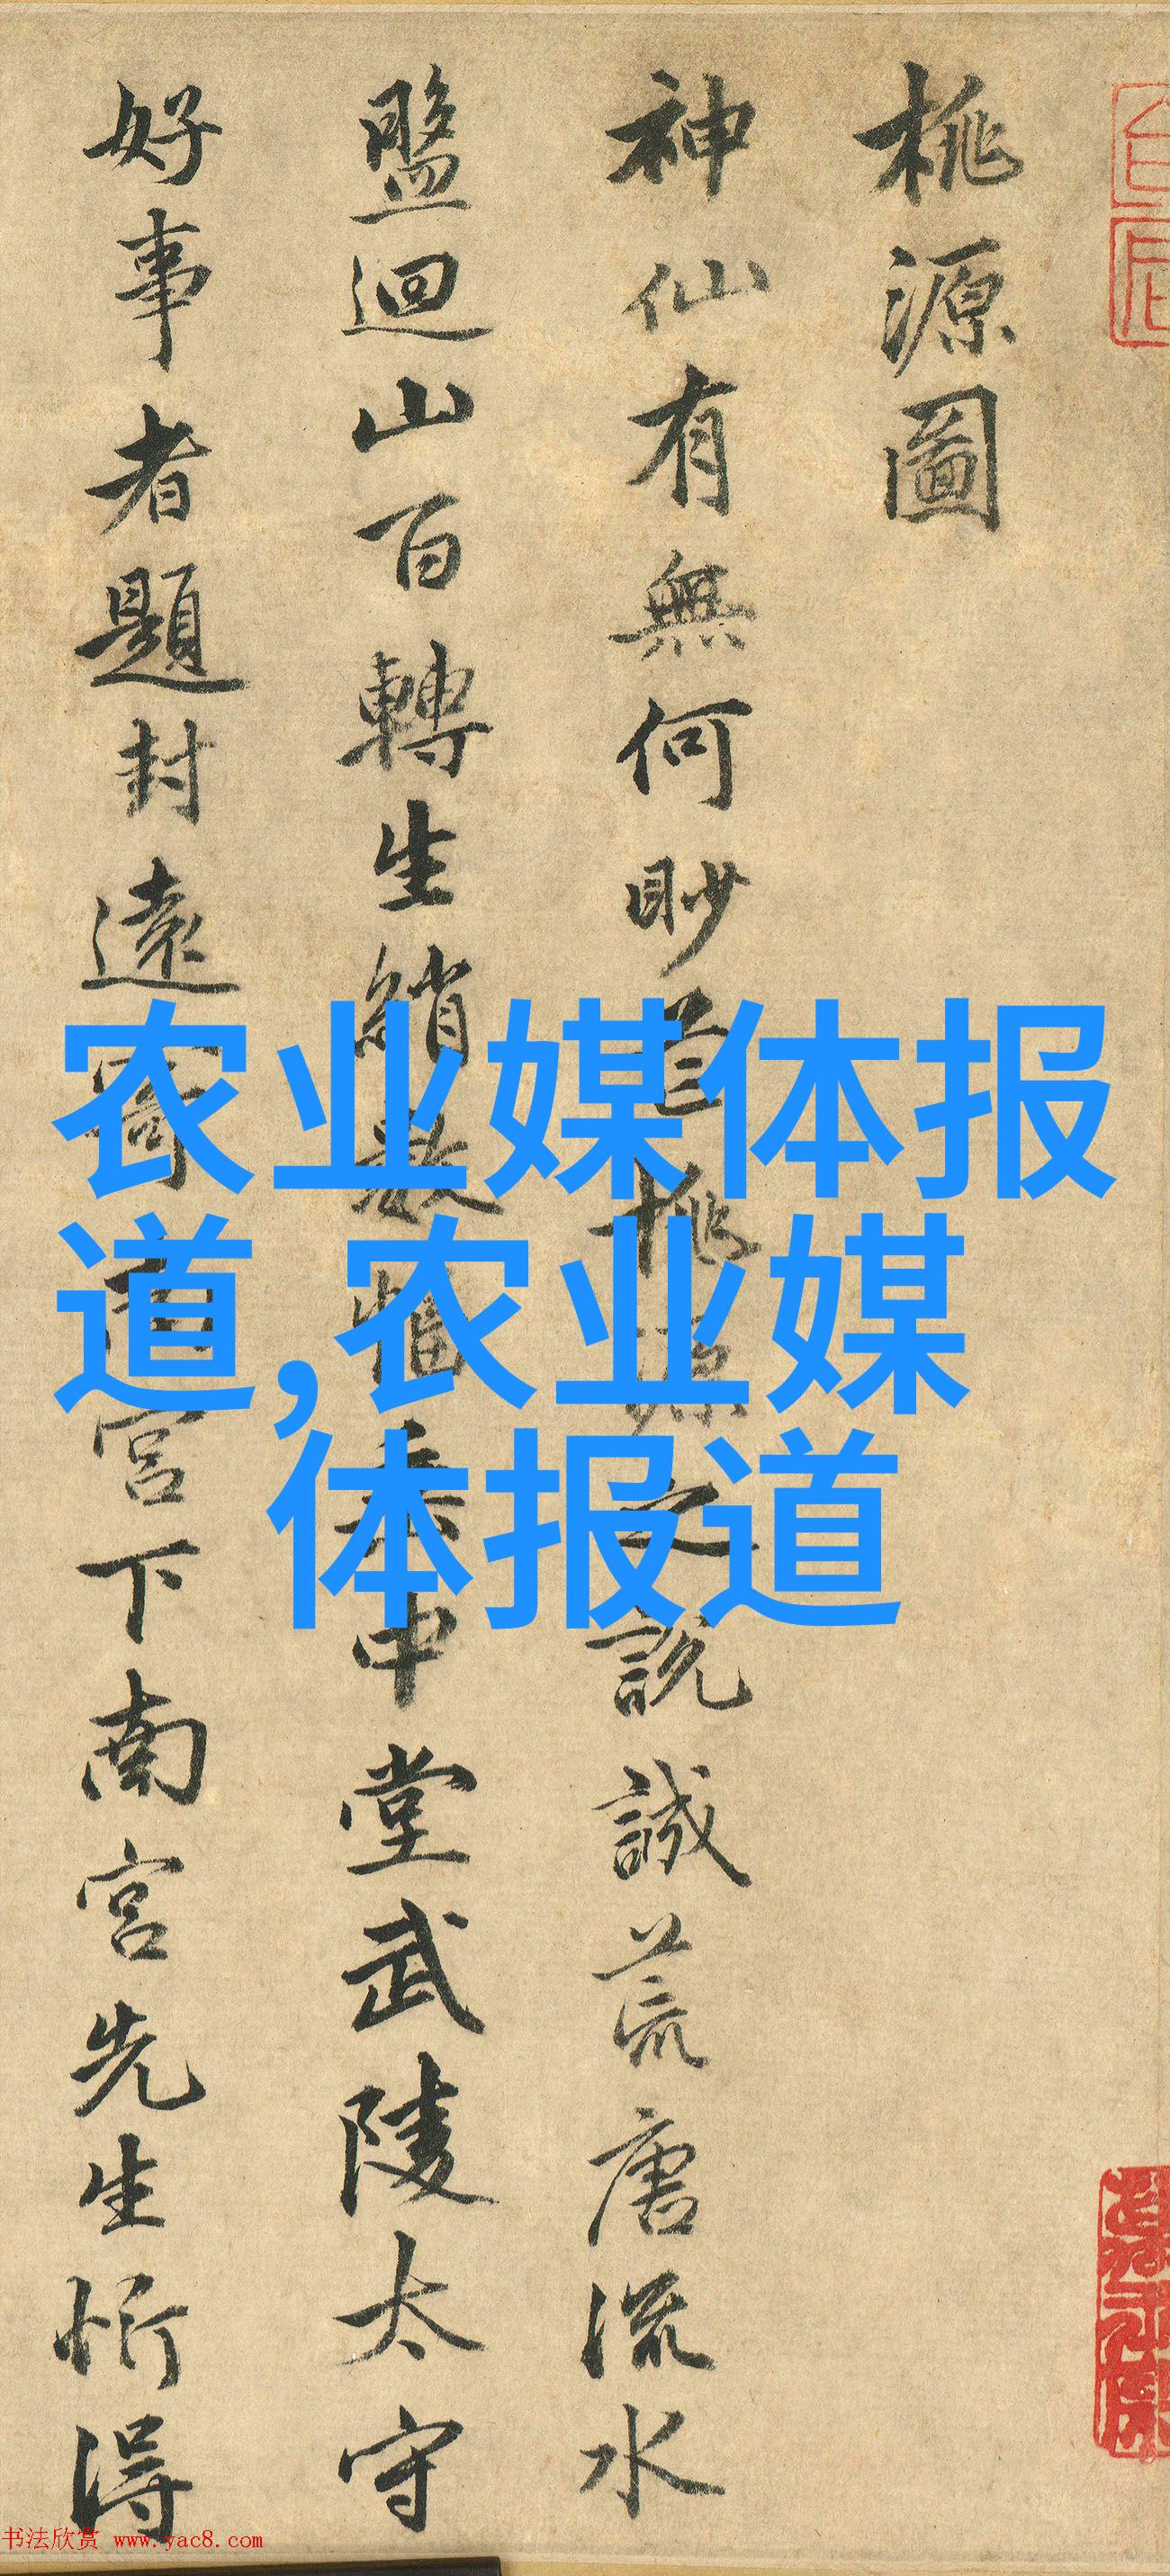 桃源圖
神仙有無何眇芒桃源之說誠荒唐流水
盤迴山百轉生綃數幅垂中堂武陵太守
好事者題封遠寄南宮下南宮先生忻得
农业媒体报
道,农业媒
体报道
书法欣赏 www.yac8.com